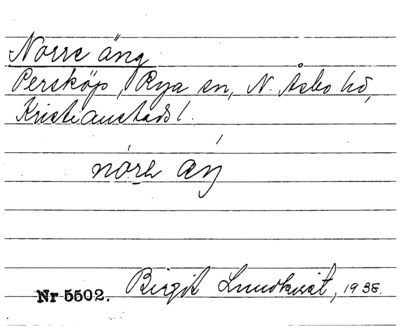 Norre äng
Persköp, Rya sn, N. Åsbo hd,
Kristianstads l.
Nr 5502. Birgit Lundkvist, 1938.